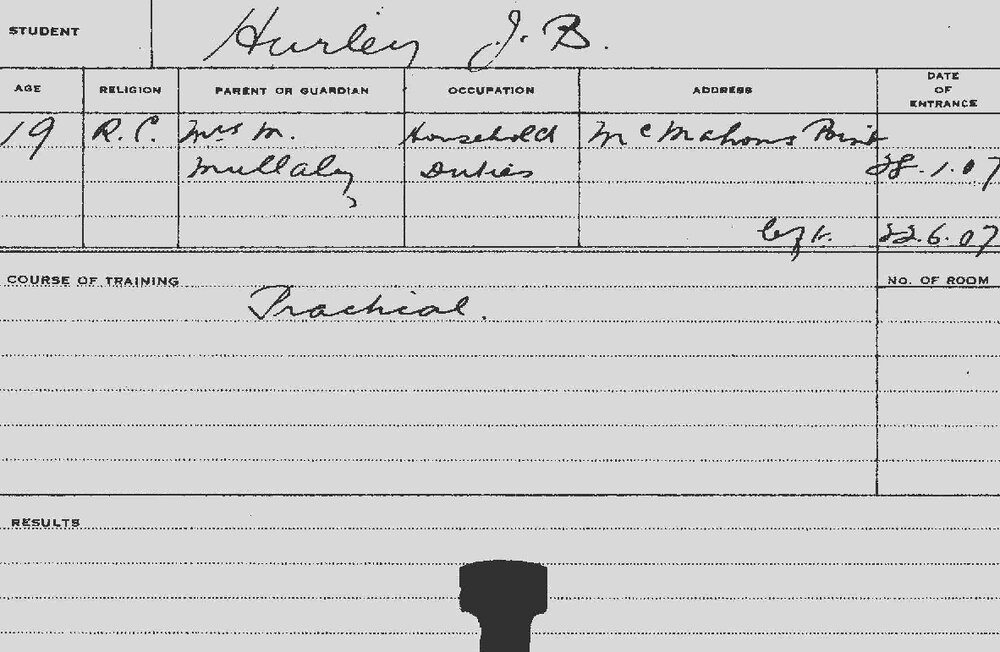 STUDENT Hurley J. B.
AGE RELIGION PARENT OR GUARDIAN OCCUPATION ADDRESS DATE OF ENTRANCE
19 R.C. Mrs M. Household McMahons Point
Mullaly Duties 28.1.07
left. 22.6.07
COURSE OF TRAINING No. OF ROOM
Practical.
RESULTS